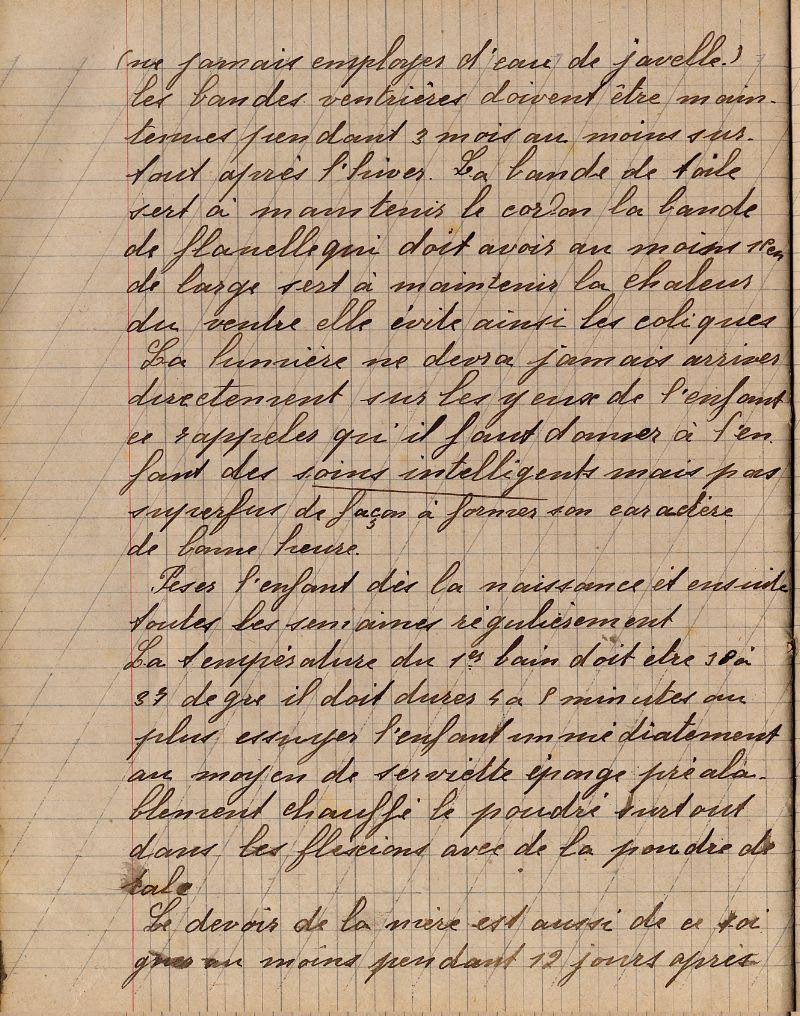 (ne jamais employer d'eau de javelle.)
les bandes ventrières doivent être main-
tenues pendant 3 mois au moins sur-
tout après l'hiver. La bande de toile
sert à maintenir le cordon la bande
de flanelle qui doit avoir au moins
de large sert à maintenir la chaleur
du ventre elle évite ainsi les coliques
La lumière ne devra jamais arriver
directement sur les yeux de l'enfant
ce rappeler qu'il faut donner à l'en
fant des soins intelligents mais pas
superflus de façon à former son caractère
de bonne heure.
Peser l'enfant dès la naissance et ensuite
toutes les semaines régulièrement
La température du 1er bain doit être 38 à
degre il doit durer a minutes au
plus essuyer l'enfant immédiatement
au moyen de serviette éponge préala-
blement chauffé le poudré surtout
dans les flexions avec de la poudre de
talc
Le devoir de la mère est aussi de ce soi
gner au moins pendant 12 jours après